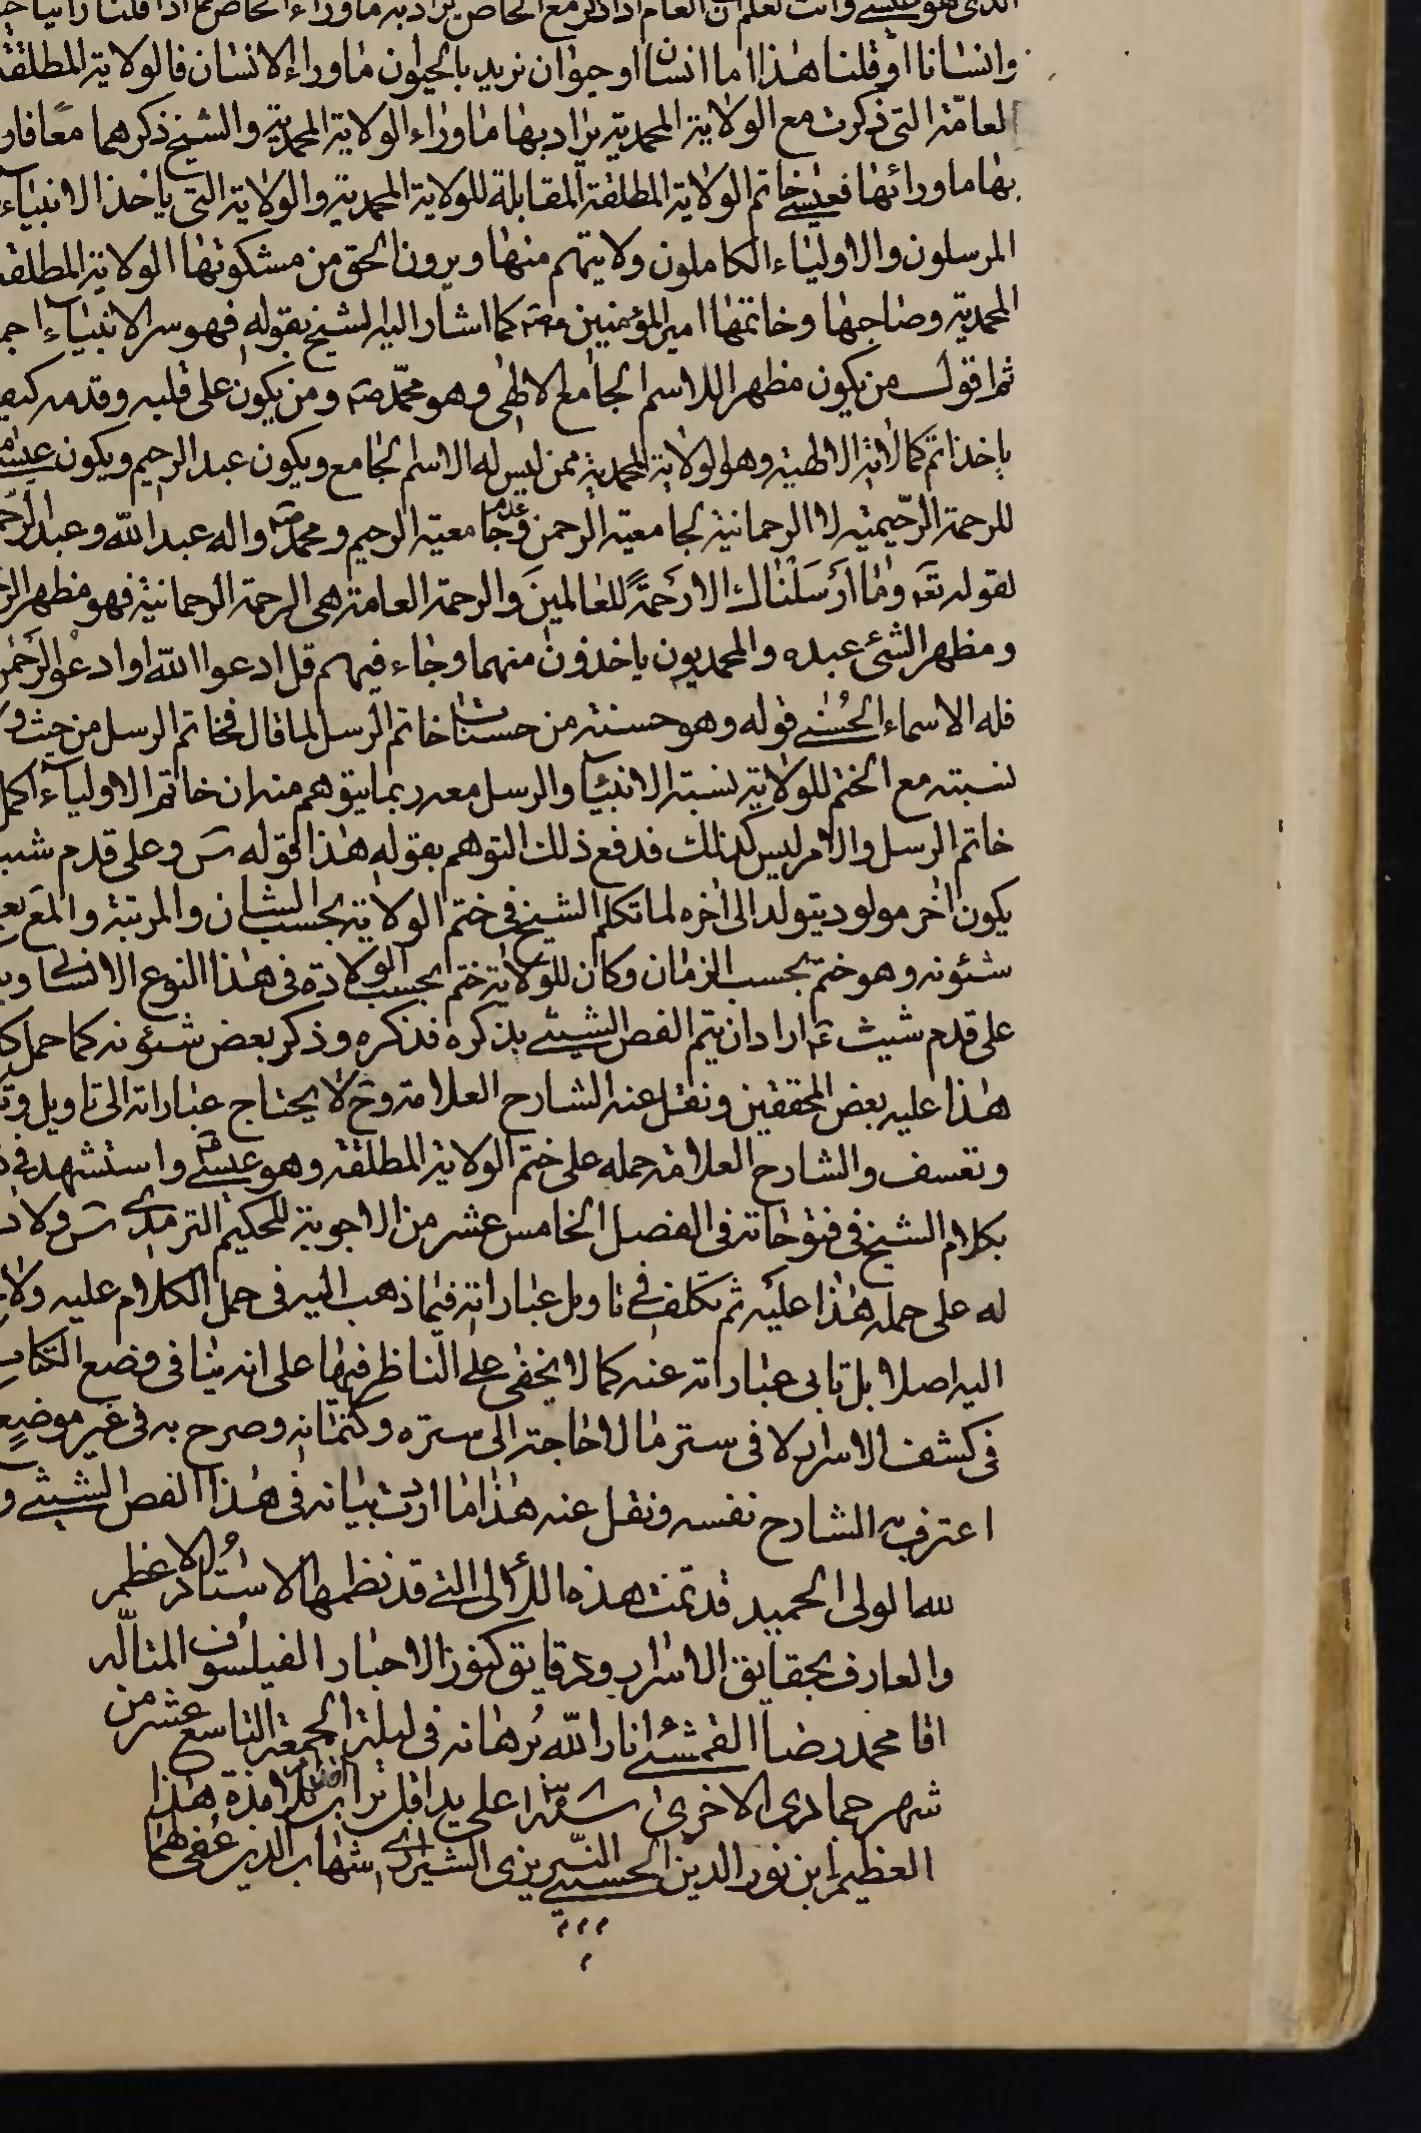 الذى هو عيسى وانت تعلم ان العام اذا ذكر مع الخاص يراد به ماوراء الخاص
وانسانا او قلنا هذا اما انسان او حيوان نريد بالحيوان ماوراء الانسان فالولاية المطلقة
العامة التى ذكرت مع الولاية المحمدية يراد بها ماوراء الولاية المحمدية والشيخ ذكرهما معا
بها ما ورائها فعيسى خاتم الولاية المطلقة المقابلة للولاية المحمدية والولاية التى ياخذ الانبياء
المرسلون والاولياء الكاملون ولايتهم منها ويرون الحق من مشكوتها الولاية المطلقة
المحمدية وصاحبها وخاتمها امير المؤمنين كما اشار اليه الشيخ بقوله فهو سر الانبياء
ثم اقول من يكون مظهرا للاسم الجامع الالهى وهو محمد صه ومن يكون على قلبه وقدمه
ياخذ اتم كمالاته الالهية وهو الولاية المحمدية ممن ليس له الاسم الجامع ويكون عبد الرحيم ويكون
للرحمة الرحيمية لا الرحمانية لجامعية الرحمن وعدم جامعية الرحيم ومحمد صه واله عبد الله وعبد
لقوله تعه وما ارسلناك الا رحمة للعالمين والرحمة العامة هى الرحمة الرحمانية فهو مظهر
ومظهر الشئ عبده والمحمديون ياخذون منهما وجاء فيهم قل ادعوا الله او ادعوا الرحمن
فله الاسماء الحسنى قوله وهو حسنة من حسنات خاتم الرسل لما قال فخاتم الرسل من حيث
نسبته مع الختم للولاية نسبة الانبياء والرسل معه ربما يتوهم منه ان خاتم الاولياء اكمل
خاتم الرسل والامر ليس كذلك فدفع ذلك التوهم بقوله هذا قوله س وعلى قدم
يكون اخر مولود يتولد الى اخره لما تكلم الشيخ فى ختم الولاية بحسب الشان والمرتبة
شئونه وهو ختم بحسب الزمان وكان للولاية ختم بحسب الولادة فى هذا النوع الانسانى
على قدم شيث ع اراد ان يتم الفص الشيثى بذكره فذكره وذكر بعض شئونه كما حمل
هذا عليه بعض المحققين ونقل عنه الشارح العلامة وح لا يحتاج عباراته الى تاويل
وتعسف والشارح العلامة حمله على ختم الولاية المطلقة وهو عيسى واستشهد
بكلام الشيخ فى فتوحاته فى الفصل الخامس عشر من الاجوبة للحكيم الترمدى س
له على حمله هذا عليه ثم تكلف فى تاويل عباراته فيما ذهب اليه فى حمل الكلام عليه
اليه اصلا بل تابى عباراته عنه كما لا يخفى على الناظر فيها على انه ينافى وضع الكتاب
فى كشف الاسرار لا فى ستر مالا حاجة الى ستره وكتمانه وصرح به فى غير موضع
اعترف به الشارح نفسه ونقل عنه هذا ما اردت بيانه فى هذا الفص الشيثى
لله الولى الحميد قد تمت هذه اللألى التى قد نظمها الاستاد الاعظم
والعارف بحقايق الاسرار ودقايق كنوز الاحبار الفيلسوف المتاله
اقا محمد رضا القمشئى انار الله برهانه فى ليلة الجمعة التاسع عشر من
شهر جمادى الاخرى على يد اقل تراب اقدام تلامذة هذا
العظيم ابن نور الدين الحسينى النيريزى الشيرازى شهاب الدين عفى عنهما